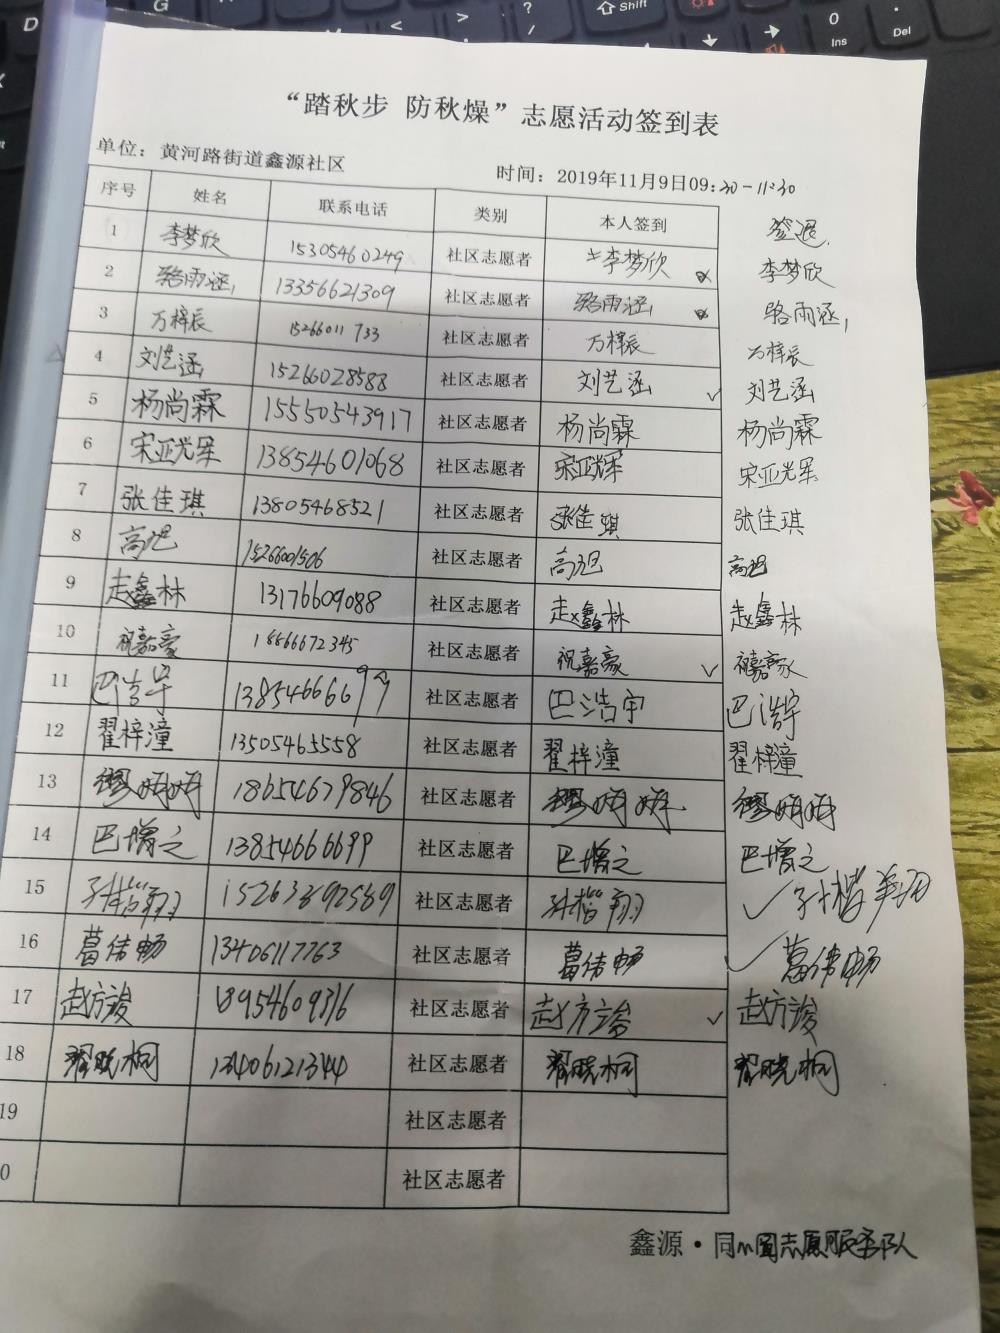 “踏秋步 防秋燥”志愿活动签到表
单位：黄河路街道鑫源社区 时间：2019年11月9日09:30-11:30
序号 姓名 联系电话 类别 本人签到 签退
1 李梦欣 15305460249 社区志愿者 李梦欣 李梦欣
2 骆雨涵 13356621309 社区志愿者 骆雨涵 骆雨涵
3 万梓辰 15266011733 社区志愿者 万梓辰 万梓辰
4 刘艺涵 15266028588 社区志愿者 刘艺涵 ✓ 刘艺涵
5 杨尚霖 15550543917 社区志愿者 杨尚霖 杨尚霖
6 宋亚辉 13854601068 社区志愿者 宋亚辉 宋亚辉
7 张佳琪 13805468521 社区志愿者 张佳琪 张佳琪
8 高旭 15266001506 社区志愿者 高旭 高旭
9 赵鑫林 13176609088 社区志愿者 赵鑫林 赵鑫林
10 祝嘉豪 18866672345 社区志愿者 祝嘉豪 ✓ 祝嘉豪
11 巴浩宇 13854666699 社区志愿者 巴浩宇 巴浩宇
12 翟梓潼 13505465558 社区志愿者 翟梓潼 翟梓潼
13 18654679846 社区志愿者
14 巴增之 13854666699 社区志愿者 巴增之 巴增之
15 孙楷翔 15263892589 社区志愿者 孙楷翔 ✓ 孙楷翔
16 葛伟畅 13406117763 社区志愿者 葛伟畅 ✓ 葛伟畅
17 赵方竣 18954609316 社区志愿者 赵方竣 ✓ 赵方竣
18 翟晓桐 13406121344 社区志愿者 翟晓桐 翟晓桐
19 社区志愿者
0 社区志愿者
鑫源·同心圆志愿服务队